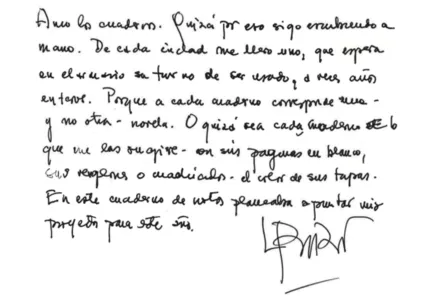 Amo los cuadernos. Quizá por eso sigo escribiendo a
mano. De cada ciudad me llevo uno, que espera
en el armario su turno de ser usado, a veces años
enteros. Porque a cada cuaderno corresponde una -
y no otra - novela. O quizá sea cada cuaderno el
que me las sugiere - con sus páginas en blanco,
sus renglones o cuadriculado - el color de sus tapas.
En este cuaderno de notas planeaba apuntar mis
proyectos para este año.